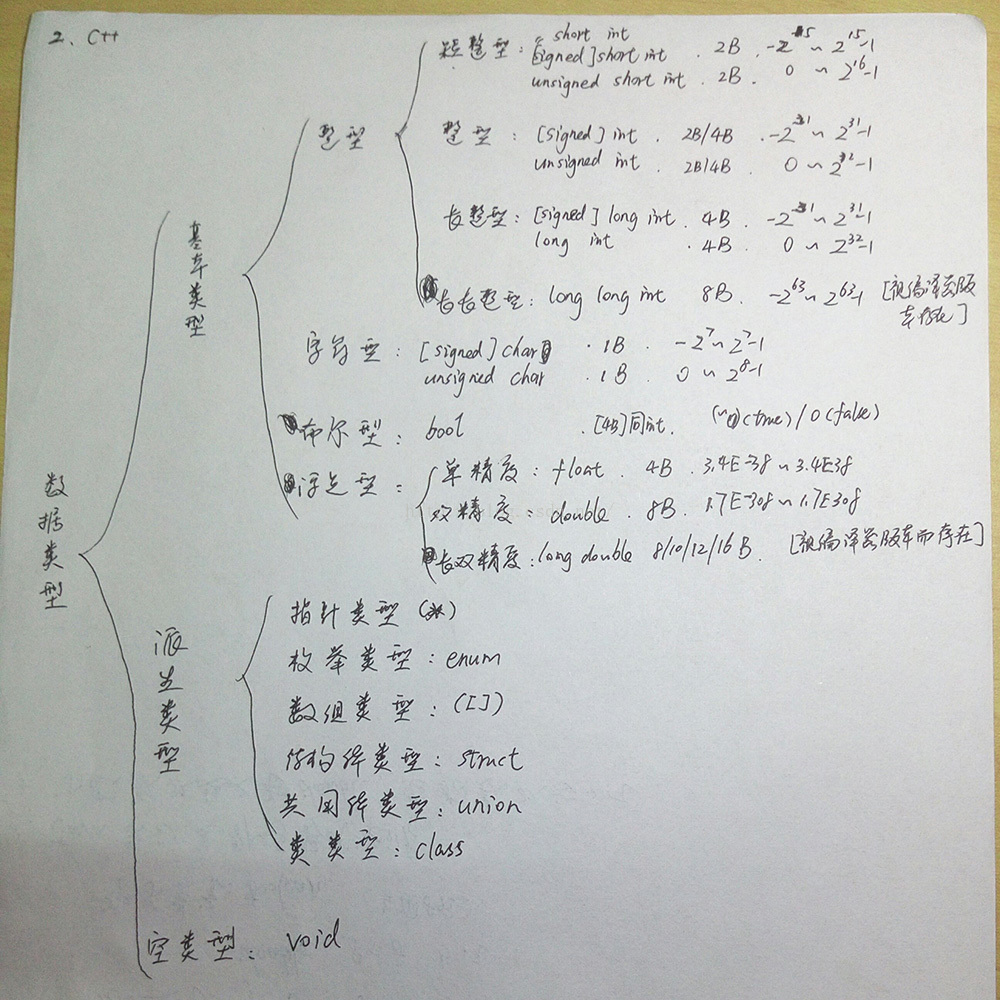 2、C++
short int
短整型：[signed]short int . 2B . -2^15 ~ 2^15-1
unsigned short int . 2B . 0 ~ 2^16-1
整型
整型：[signed] int . 2B/4B . -2^31 ~ 2^31-1
unsigned int . 2B/4B 0 ~ 2^32-1
长整型：[signed] long int . 4B . -2^31 ~ 2^31-1
long int . 4B . 0 ~ 2^32-1
基本类型
长长整型：long long int 8B . -2^63 ~ 2^63-1 [视编译器版
本存在]
字符型：[signed] char . 1B . -2^7 ~ 2^7-1
unsigned char . 1B . 0 ~ 2^8-1
布尔型：bool . [4B]同int. (true)/0(false)
浮点型：
单精度：float . 4B . 3.4E-38 ~ 3.4E38
双精度：double . 8B . 1.7E-308 ~ 1.7E308
长双精度：long double 8/10/12/16 B . [视编译器版本而存在]
数据类型
派生类型
指针类型 (*)
枚举类型：enum
数组类型：([])
结构体类型：struct
共用体类型：union
类类型：class
空类型：void